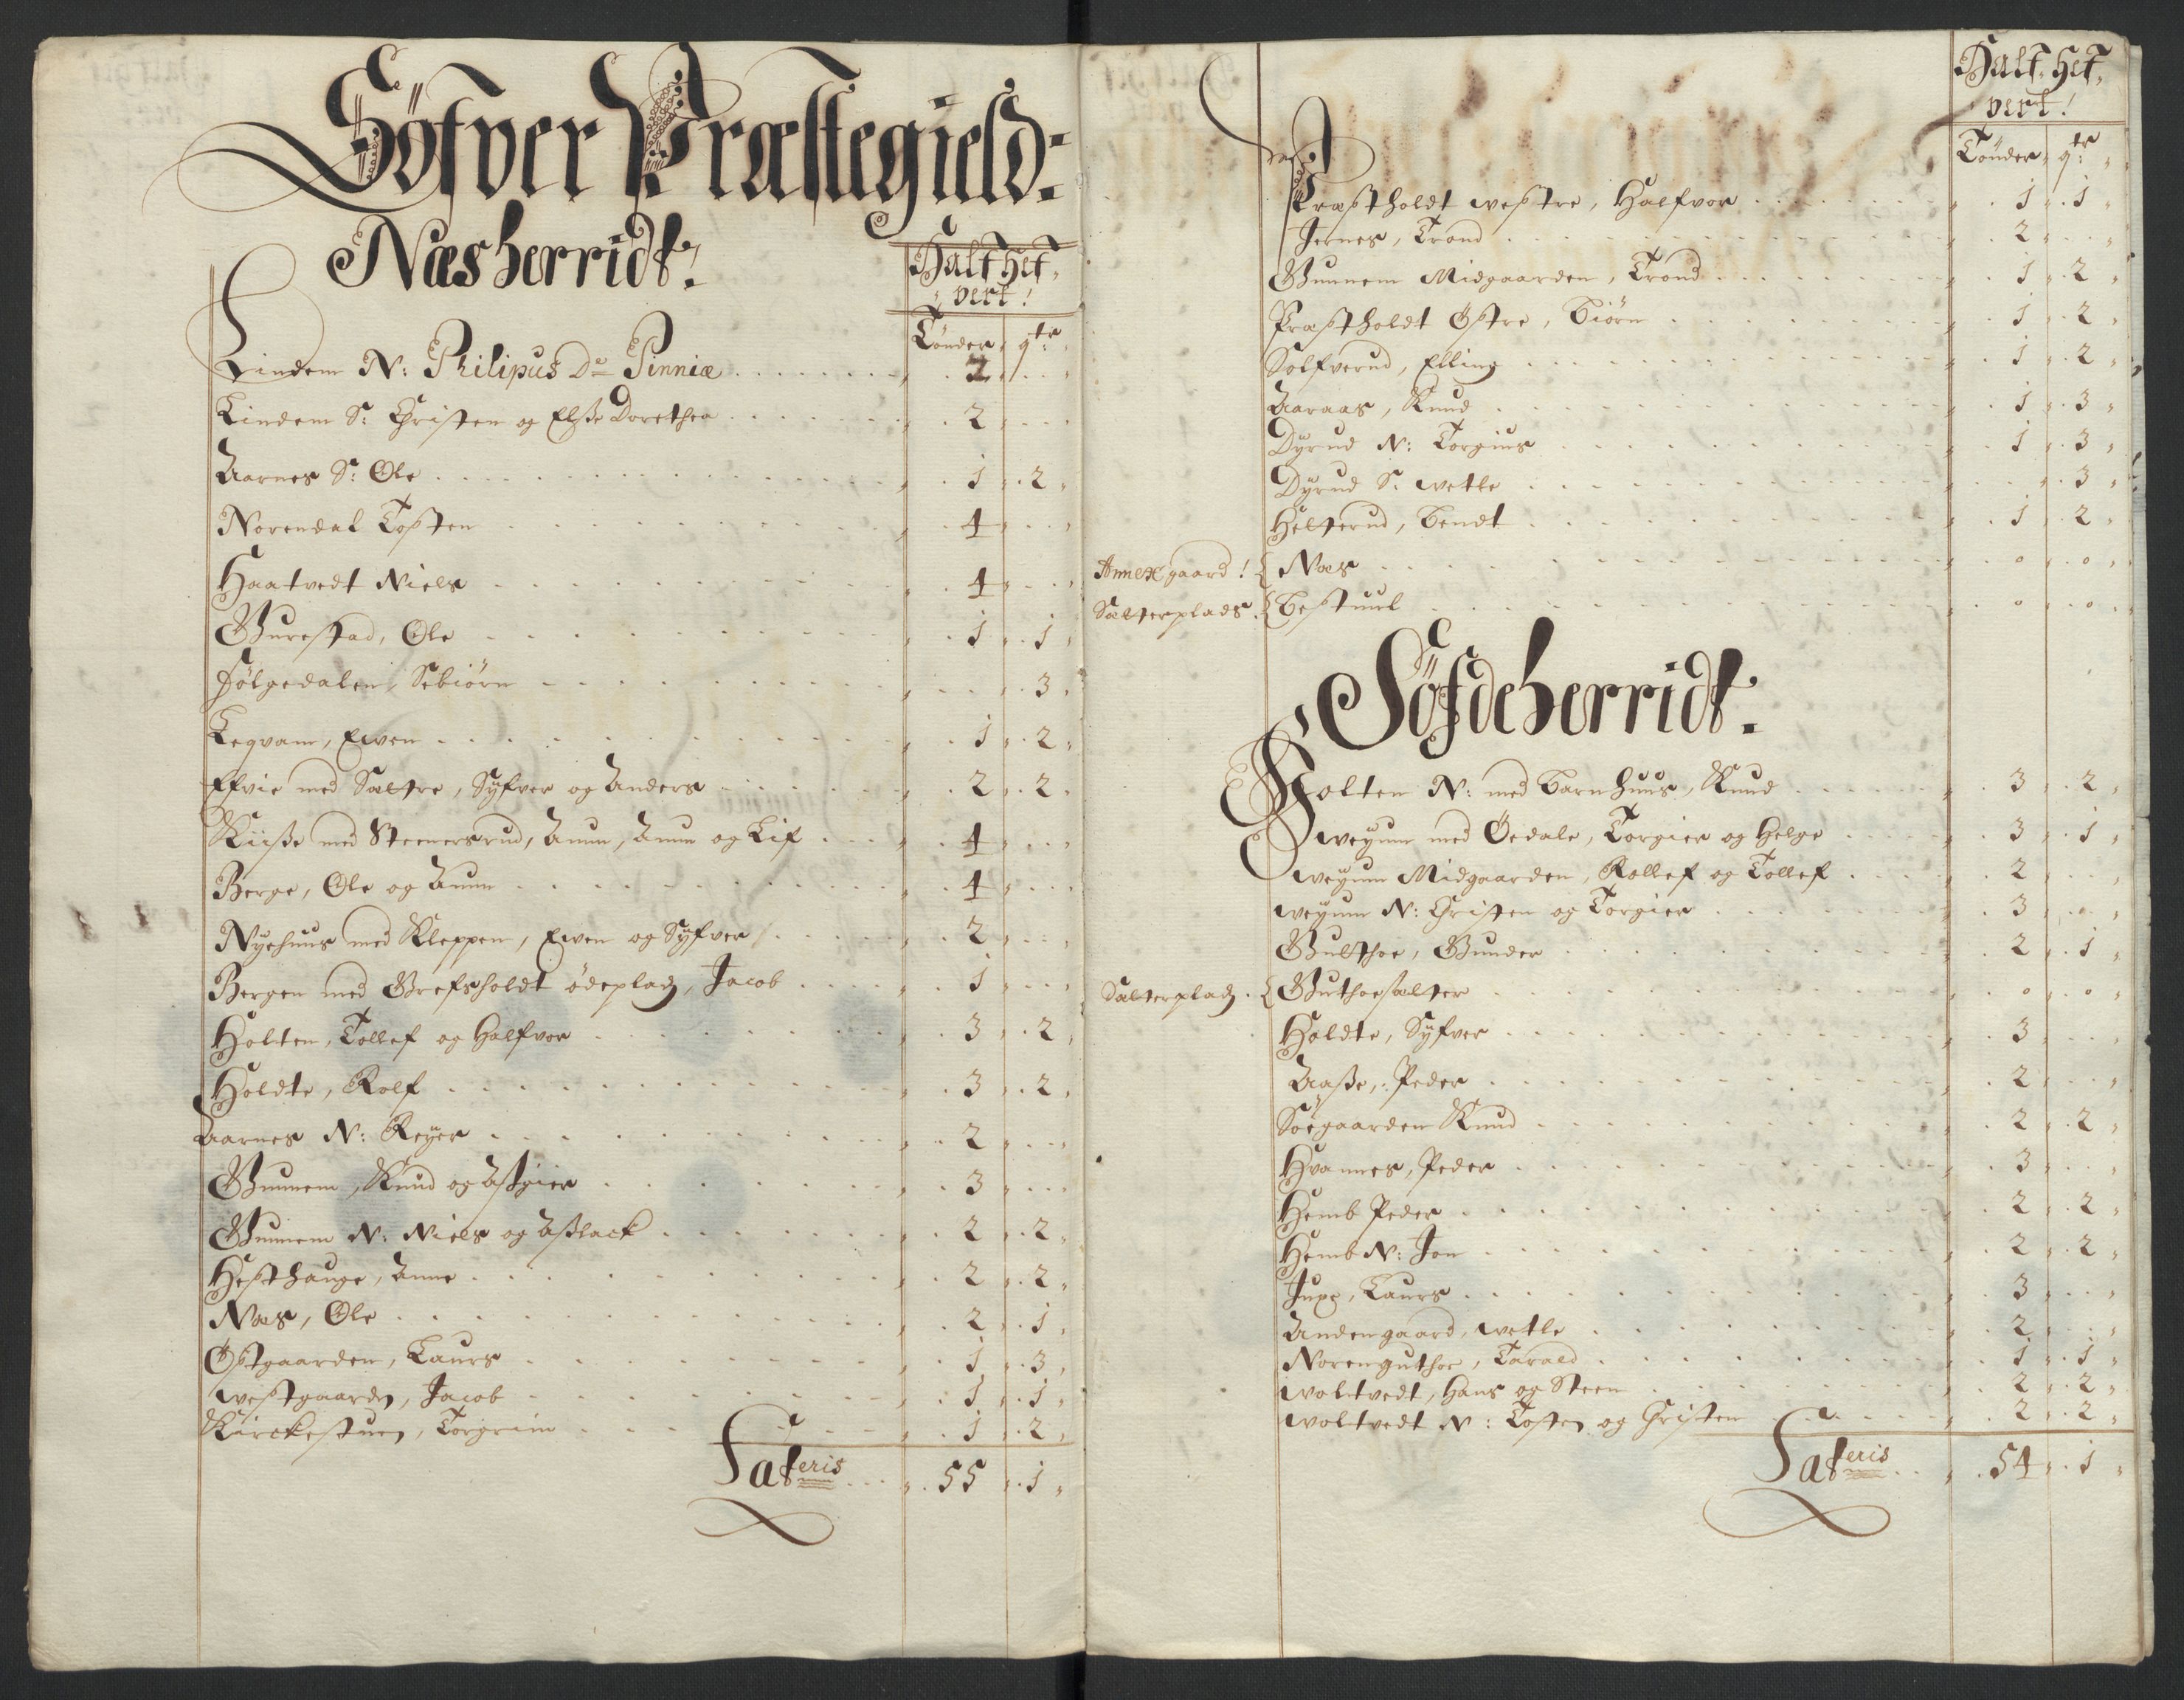 Söfver Præstegield:
Næsherridt:
Half Hef„
vert!
Tönder, qtr
Lindem N: Philipus De Pinniæ . . . 2 „ . .
Lindem S: Christen og Elsse Dorethea . . . 2 „ . .
Aarnes S: Ole . . . 1 „ . 2 „
Norendal Tosten . . . 4 „ . .
Haatvedt Niels . . . 4 „ . .
Gurestad, Ole . . . 1 „ . 1 „
Følgedalen, Sebiörn . . . „ . 3 „
Legvam, Even . . . 1 „ . 2 „
Efvie med Sæltre, Syfver og Anders . . . 2 „ . 2 „
Kiisse med Steenersrud, Aunn, Aunn og Lif . . . 4 „ . .
Berge, Ole og Aunn . . . 4 „ . .
Nyehuus med Kleppen, Even og Syfver . . . 2 „ . .
Bergen med Grefsholdt ödeplads, Jacob . . . 1 „ . .
Holten, Tollef og Halfvor . . . 3 „ . 2 „
Holdte, Rolf . . . 3 „ . 2 „
Aarnes N: Reyer . . . 2 „ . .
Gunnem, Knud og Asgier . . . 3 „ . .
Gunnem N: Niels og Asslack . . . 2 „ . 2 „
Hesthauge, Anne . . . 2 „ . 2 „
Næs, Ole . . . 2 „ . 1 „
Östgaarden, Laurs . . . 1 „ . 3 „
westgaarden, Jacob . . . 1 „ . 1 „
Kirckestuen, Torgrim . . . 1 „ . 2 „
Lateris . . . 55 „ . 1 „
Half Hef„
vert!
Tönder, qtr
Præstholdt westre, Halfvor . . . 1 „ . 1 „
Jernes, Trond . . . 2 „ . .
Gunnem Midgaarden, Trond . . . 1 „ . 2 „
Præstholdt Östre, Biörn . . . 1 „ . 2 „
Solfverud, Elling . . . 1 „ . 2 „
Aaraas, Knud . . . 1 „ . 3 „
Dyrud N: Torgius . . . 1 „ . 3 „
Dyrud S: wetle . . . „ . 3 „
Helterud, Bendt . . . 1 „ . 2 „
Annexgaard! { Næs . . . 0 „ . 0 „
Sælterplads. { Bestuul . . . 0 „ . 0 „
Söfdeherridt:
Holten N: med Barnhuus, Knud . . . 3 „ . 2 „
weyum med Ödedale, Torgier og Helge . . . 3 „ . 1 „
weyum Midgaarden, Rollef og Tollef . . . 2 „ . .
weyum N: Christen og Torgier . . . 3 „ . .
Gulthoe, Gunder . . . 2 „ . 1 „
Sælterplads. { Guthoesælter . . . 0 „ . 0 „
Holdte, Syfver . . . 3 „ . .
Aasse, Peder . . . 2 „ . .
Söegaarden Knud . . . 2 „ . 2 „
Hvannes, Peder . . . 3 „ . .
Hemb Peder . . . 2 „ . 2 „
Hemb N: Jon . . . 2 „ . 2 „
Laurs . . . 3 „ . .
Andengaard, wetle . . . 2 „ . .
Norenguthoe, Tarald . . . 1 „ . 1 „
woltvedt, Hans og Steen . . . 2 „ . 2 „
woltvedt N: Tosten og Christen . . . 2 „ . 2 „
Lateris . . . 54 „ . 1 „